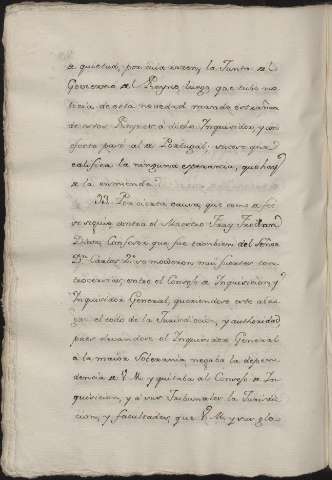 a quietud, por cuia razon, la Junta del
Govierno del Reyno, luego que tubo no-
ticia de esta novedad mando extrañar
de estos Reynos a dicho Inquisidor, y con
efecto paso al de Portugal,
califica la ninguna esperanza, que hay
a la enmienda.
Por cierta causa que como a fee
se siguio contra el Maestro Fray Froilan
Diaz, Confesor que fue tambien del Señor
Dn. Carlos 2º. se movieron mui fuertes con-
troversias entre el Consejo de Inquisicion, y
Inquisidor General, queriendose este abro-
gar el todo de la Jurisdicion, y authoridad
pues elevandose el Inquisidor General
a la maior Soberania negaba la depen-
dencia de V. M. y quitaba al Consejo de In-
quisicion, y a sus Tribunales la Jurisdi-
cion, y facultades, que V. M. y sus glo-